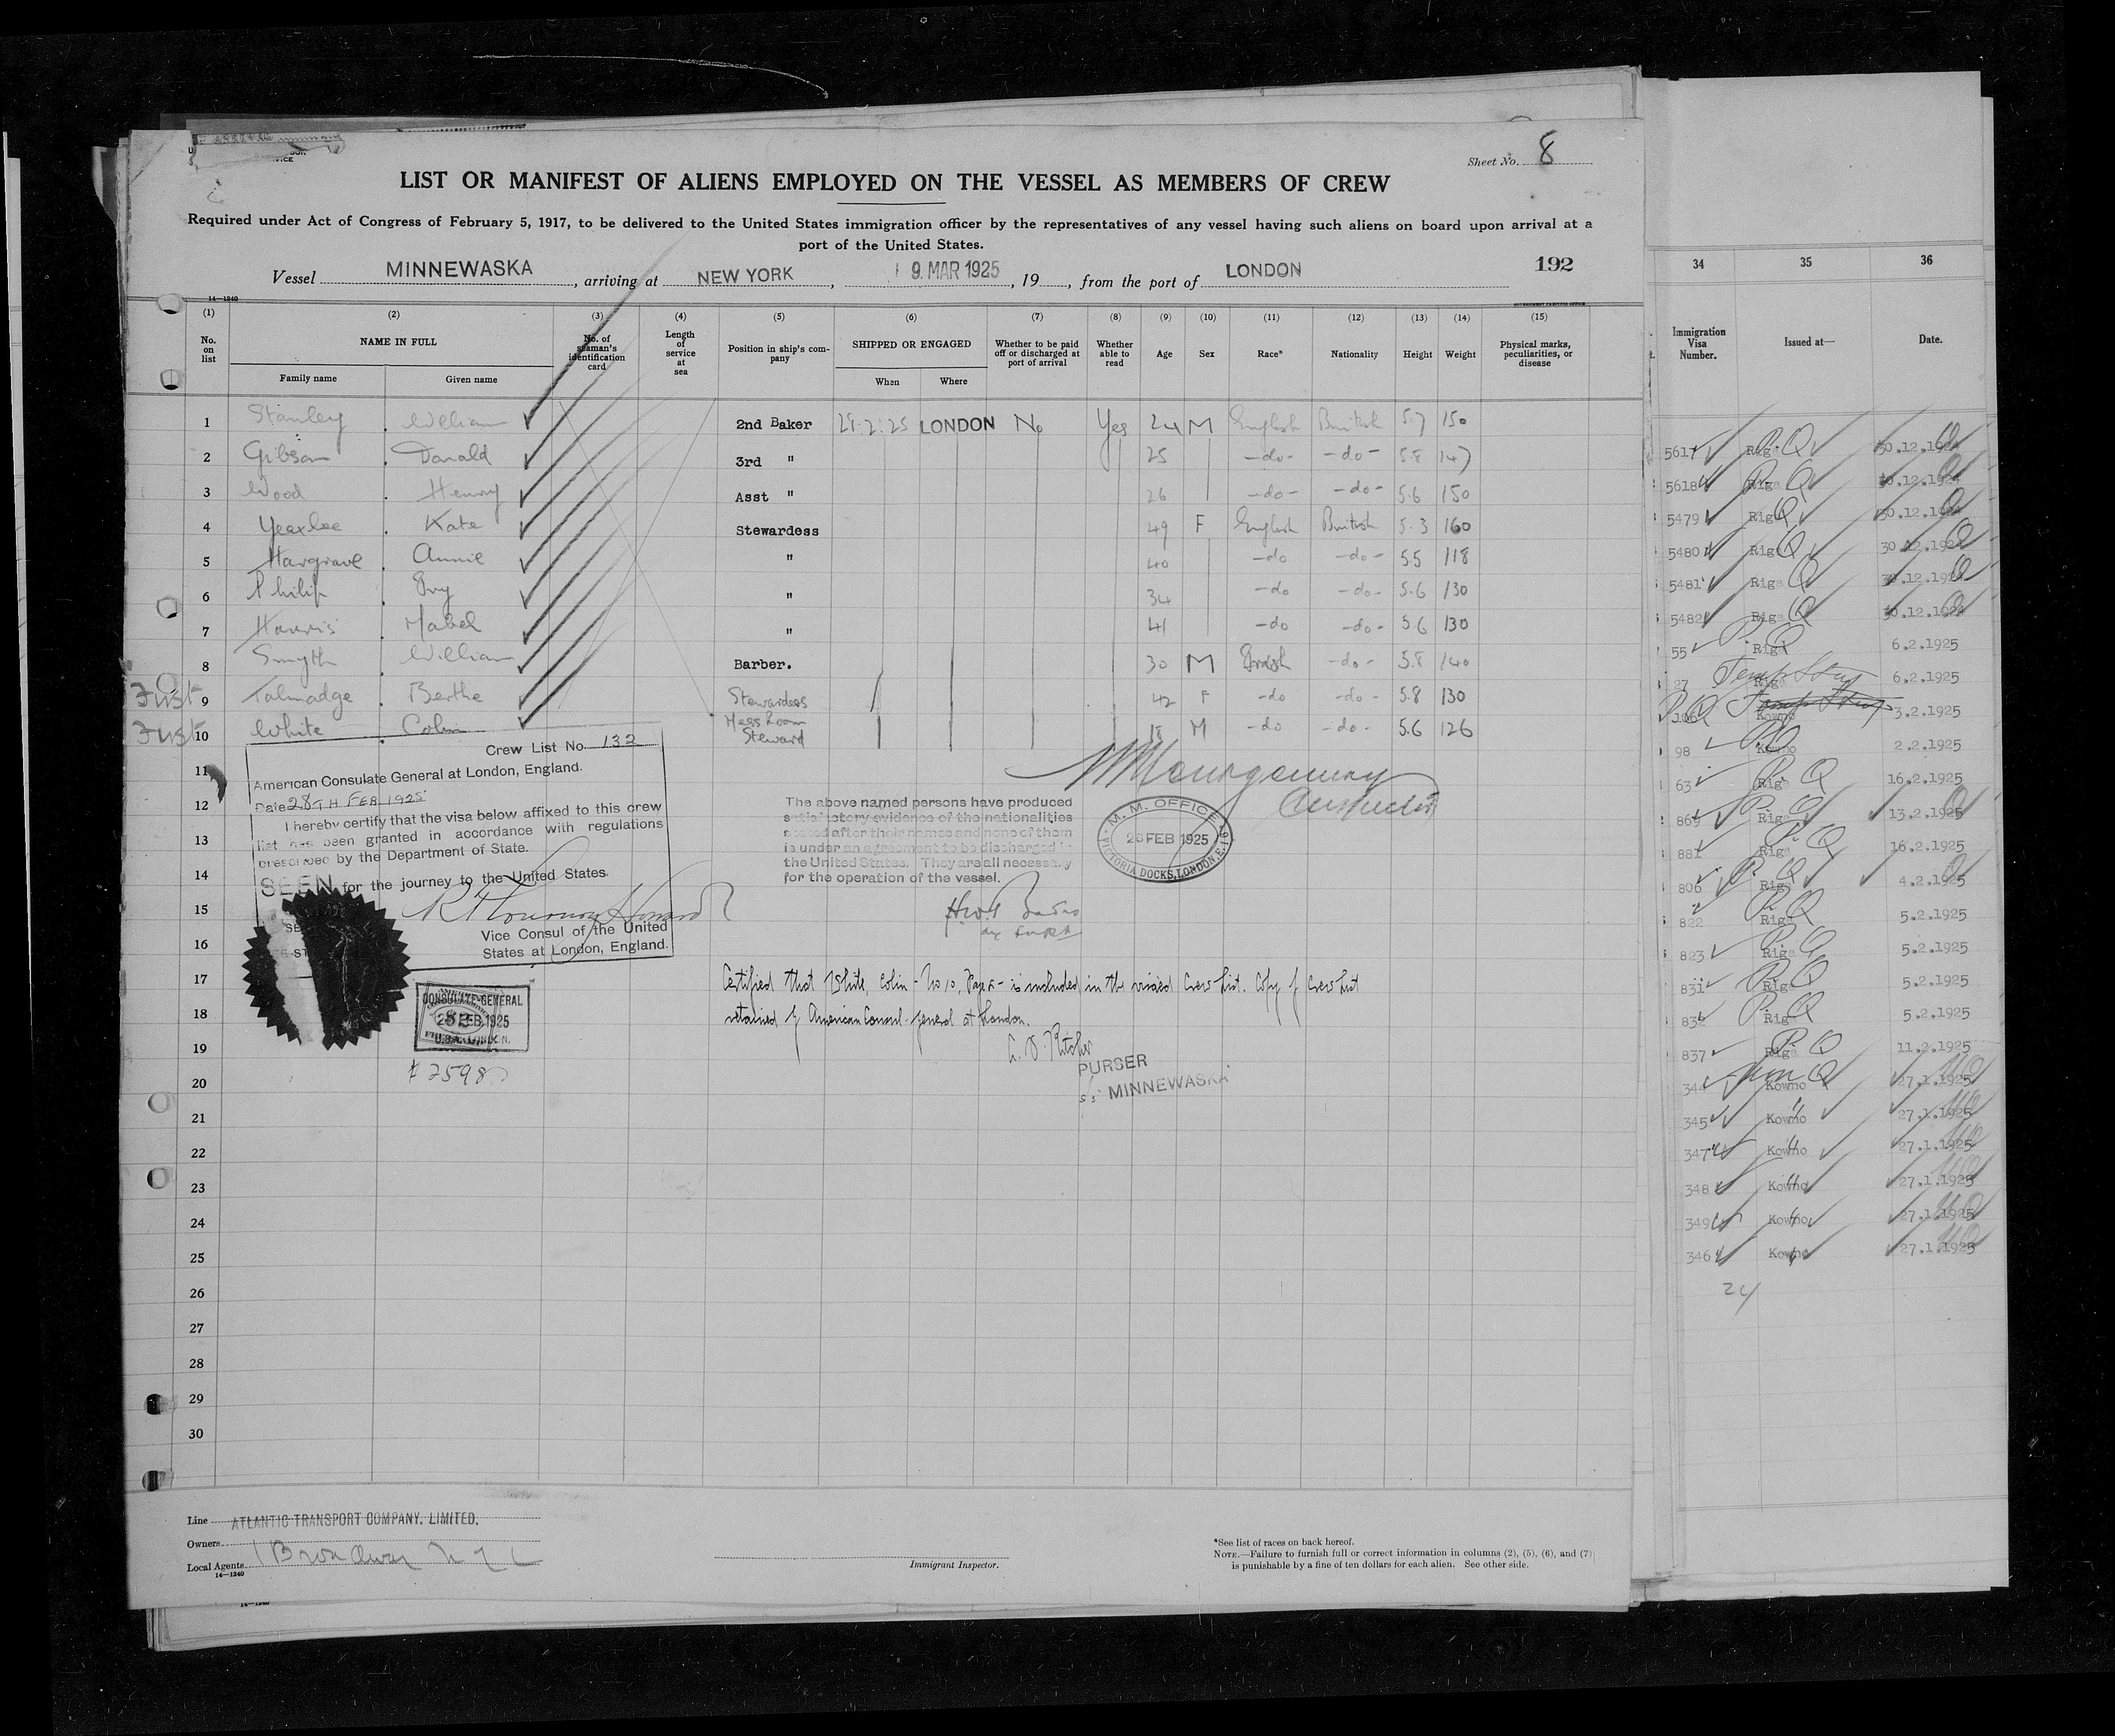 Sheet No. 8
LIST OR MANIFEST OF ALIENS EMPLOYED ON THE VESSEL AS MEMBERS OF CREW
Required under Act of Congress of February 5, 1917, to be delivered to the United States immigration officer by the representatives of any vessel having such aliens on board upon arrival at a
port of the United States.
Vessel MINNEWASKA, arriving at NEW YORK, 9 MAR 1925, 19, from the port of LONDON 192
14—1240
(1) (2) (3) (4) (5) (6) (7) (8) (9) (10) (11) (12) (13) (14) (15)
No. on list
NAME IN FULL
Family name
Given name
No. of seaman's identification card
Length of service at sea
Position in ship's company
SHIPPED OR ENGAGED
When
Where
Whether to be paid off or discharged at port of arrival
Whether able to read
Age
Sex
Race*
Nationality
Height
Weight
Physical marks, peculiarities, or disease
1 Stanley William 2nd Baker 28.2.25 LONDON No Yes 24 M English British 5.7 150
2 Gibson Donald 3rd " 25 -do- -do- 5.8 147
3 Wood Henry Asst " 26 -do- -do- 5.6 150
4 Yeaxlee Kate Stewardess 49 F English British 5.3 160
5 Hargrave Annie " 40 -do -do- 5.5 118
6 Philip Ivy " 34 -do -do- 5.6 130
7 Harris Mabel " 41 -do -do- 5.6 130
8 Smyth William Barber. 30 M -do- 5.8 140
First 9 Talmadge Berthe Stewardess 42 F -do -do- 5.8 130
First 10 White Colin Mess Room Steward 18 M -do -do- 5.6 126
11
12
13
14
15
16
17
18
19
20
21
22
23
24
25
26
27
28
29
30
Crew List No. 132
American Consulate General at London, England.
Date 28TH FEB 1925
I hereby certify that the visa below affixed to this crew
list has been granted in accordance with regulations
prescribed by the Department of State.
SEEN for the journey to the United States.
Vice Consul of the United
States at London, England.
CONSULATE-GENERAL
FEB 1925
The above named persons have produced
satisfactory evidence of the nationalities
stated after their names and none of them
is under an agreement to be discharged in
the United States. They are all necessary
for the operation of the vessel.
Montgomery
M. M. OFFICE
FEB 1925
VICTORIA DOCKS, LONDON, E.
Certified that White, Colin - No 10, Page 8 - is included in the visaed Crew List. Copy of Crew List
retained by American Consul-General at London.
PURSER
s.s. MINNEWASKA
Line ATLANTIC TRANSPORT COMPANY, LIMITED.
Owners
Local Agents 1 Broadway N Y C
14—1240
Immigrant Inspector.
*See list of races on back hereof.
NOTE.—Failure to furnish full or correct information in columns (2), (5), (6), and (7)
is punishable by a fine of ten dollars for each alien. See other side.
34 35 36
Immigration Visa Number.
Issued at—
Date.
5617 Riga 30.12.1924
5618 Riga 30.12.1924
5479 Riga 30.12.1924
5480 Riga 30.12.1924
5481 Riga 30.12.1924
5482 Riga 30.12.1924
55 Riga 6.2.1925
27 Riga 6.2.1925
106 Kowno 3.2.1925
98 Kowno 2.2.1925
63 Riga 16.2.1925
869 Riga 13.2.1925
881 Riga 16.2.1925
806 Riga 4.2.1925
822 Riga 5.2.1925
823 Riga 5.2.1925
831 Riga 5.2.1925
832 Riga 5.2.1925
837 Riga 11.2.1925
344 Kowno 27.1.1925
345 Kowno 27.1.1925
347 Kowno 27.1.1925
348 Kowno 27.1.1925
349 Kowno 27.1.1925
346 Kowno 27.1.1925
24